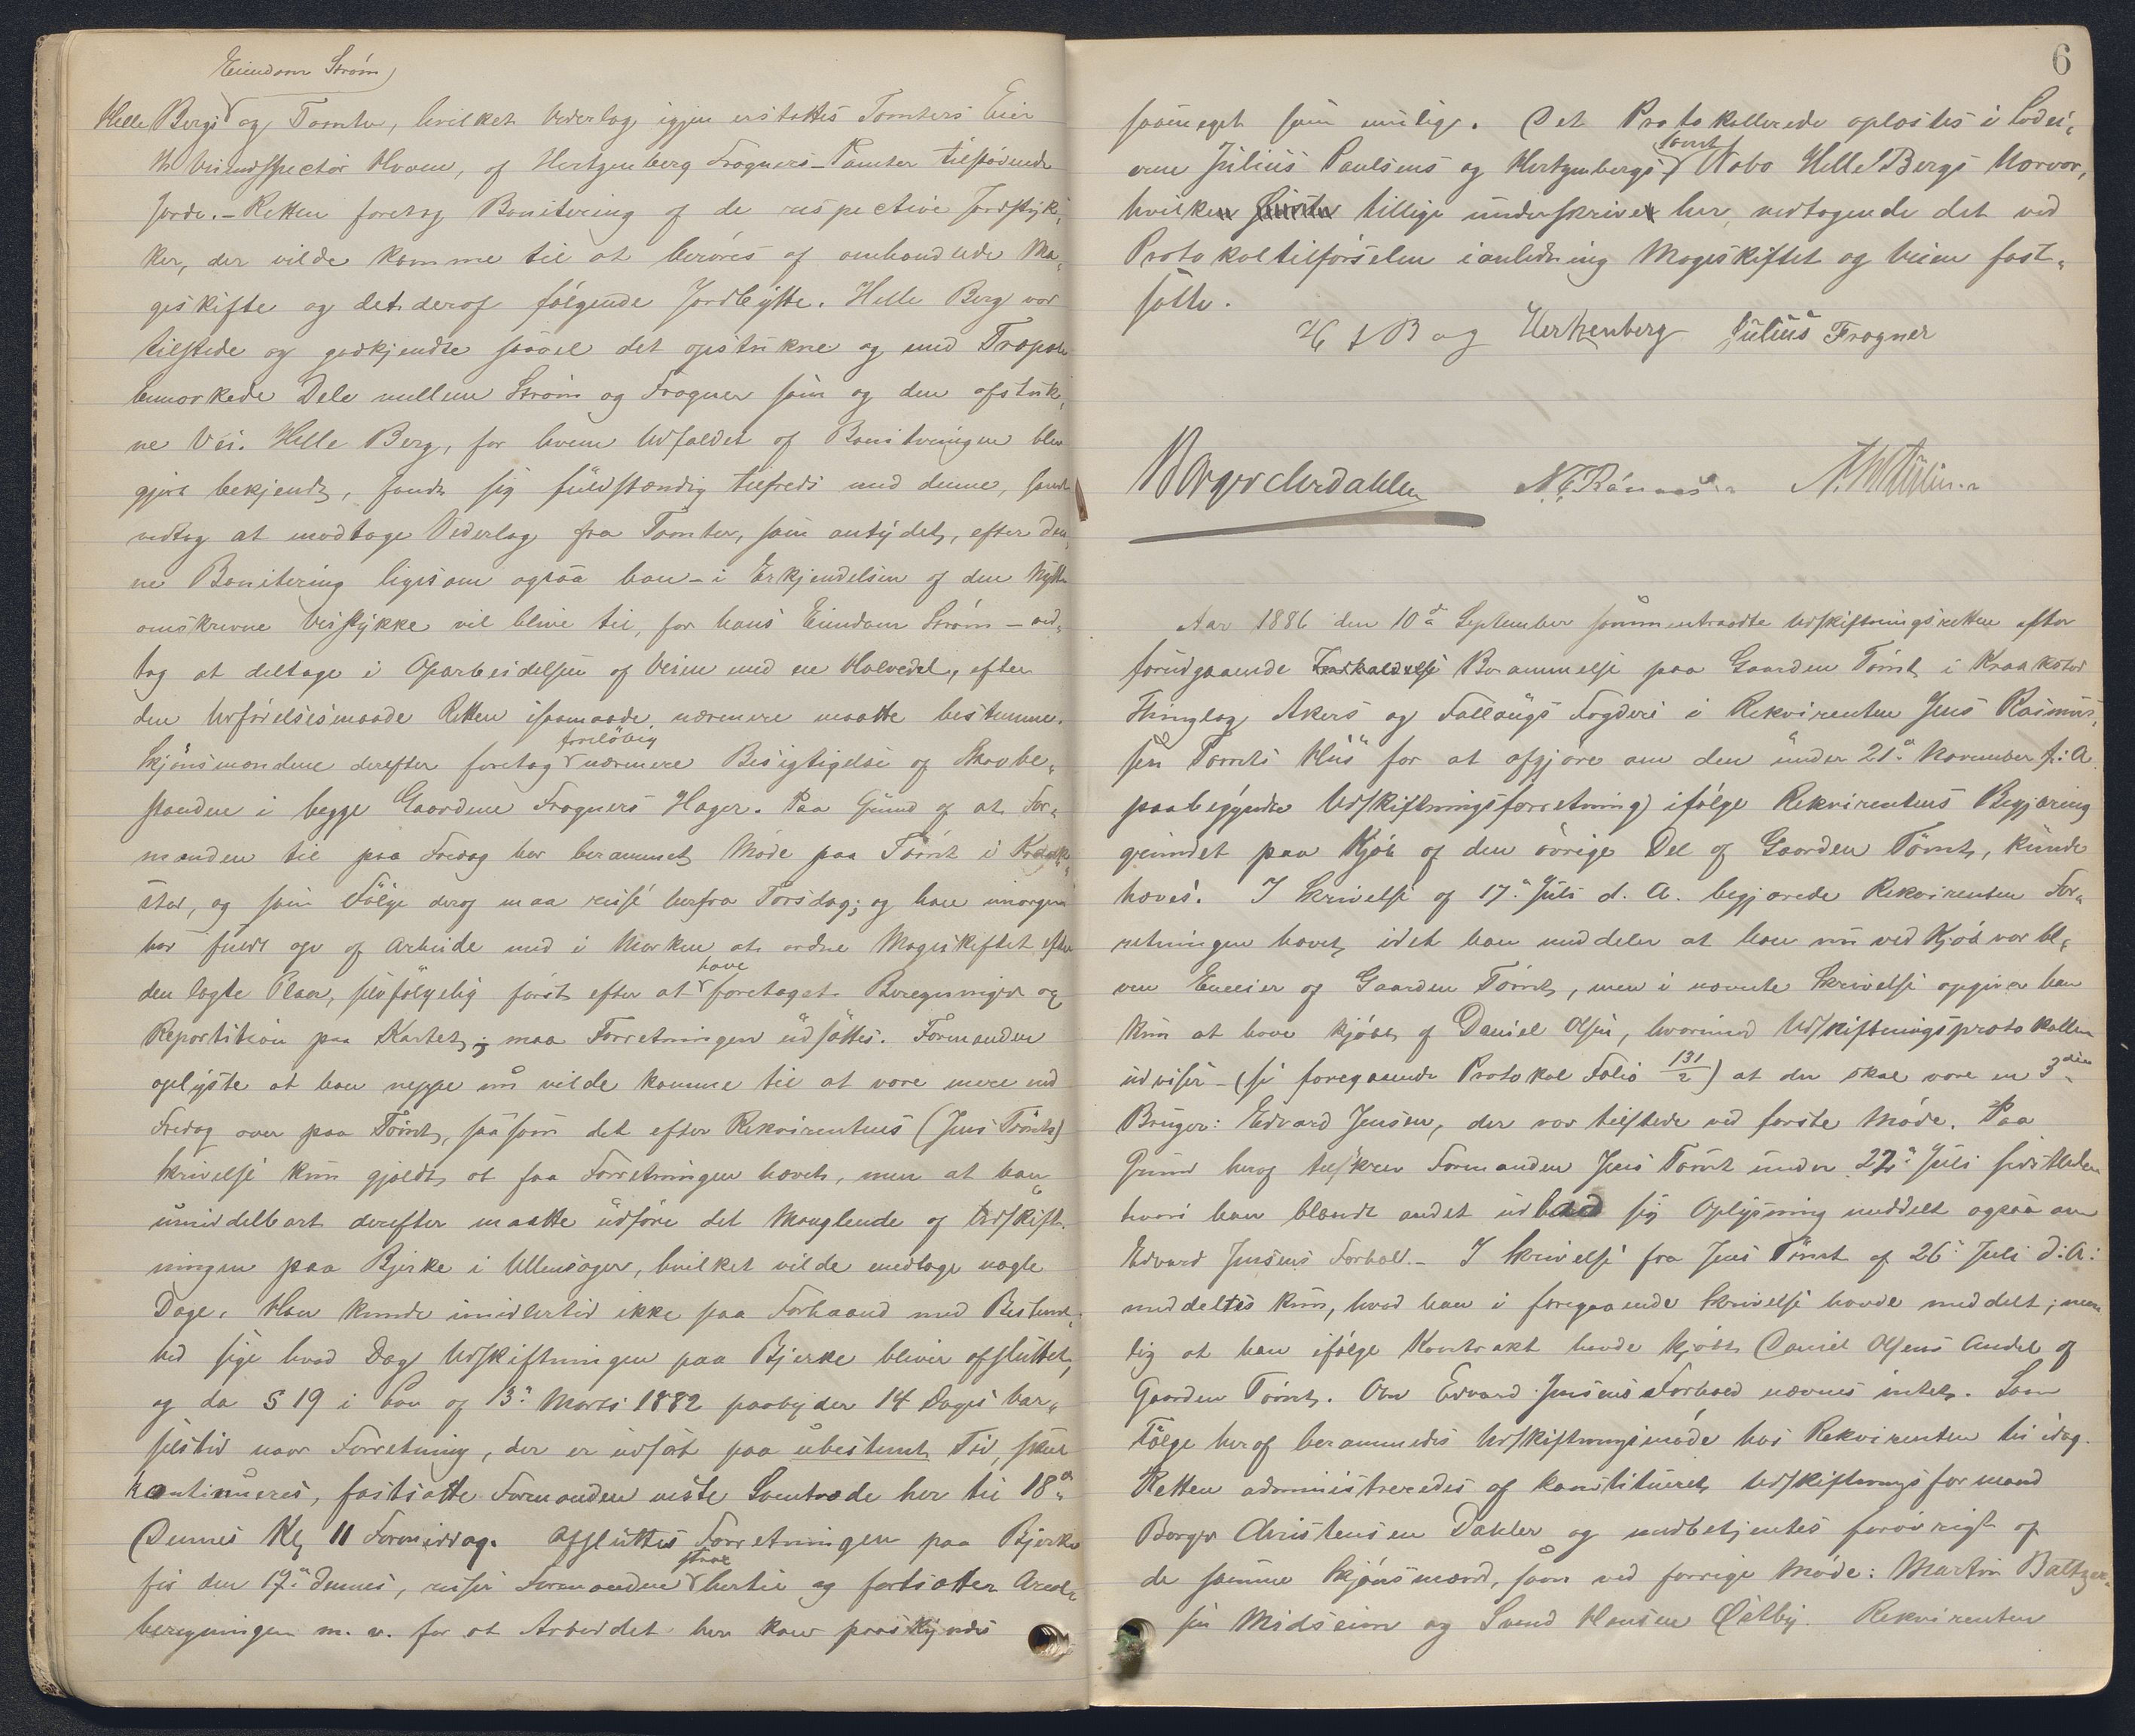 Eiendom Strøm
Helle Bergs og Tomter, hvilket Vederlag igjen erstattes Tomters Eier
Hr Veiinspector Hoem, af Hertzenberg Frogners - Tomter tilstødende
Jorde. - Retten foretog Bonitering af de respective Jordstyk,
ker, der vilde komme til at berøres af omhandlede Ma,
geskifte og det deraf følgende Jordbytte. Helle Berg var
tilstede og godkjendte saavel det opstukne og med
bemærkede Dele mellem Strøm og Frogner som og den afstuk,
ne Vei. Helle Berg, for hvem Udfaldet af Boniteringen blev
gjort bekjendt, fandt sig fuldstændig tilfreds med denne, samt
vedtog at modtage Vederlag fra Tomter, som antydet, efter den,
ne Bonitering ligesom ogsaa han - i Erkjendelsen af den Nytte
omskrevne Veistykke vil blive til, for hans Eiendom Strøm - ved,
tog at deltage i Oparbeidelsen af Veien med en Halvedel, efter
den Udførelsesmaade Retten isaamaade nærmere maatte bestemme.
foreløbig
Skjønsmændene derefter foretog nærmere Besigtigelse af Skovbe,
standen i begge Gaardene Frogners Hager. Paa Grund af at For,
manden til paa Fredag har berammet Møde paa Tømt i Kraak,
stad, og som Følge deraf maa reise herfra Torsdag; og han imorgen
har fuldt op af Arbeide med i Marken at ordne Mageskiftet efter
have
den lagte Plan, selvfølgelig først efter at foretaget Beregninger og
Repartition paa Kartet; maa Forretningen udsættes. Formanden
oplyste at han neppe nu vilde komme til at være mere end
Fredag over paa Tømt, saasom det efter Rekvirentens (Jens Tømts)
Skrivelse kun gjaldt at faa Forretningen hævet, men at han
umiddelbart derefter maatte udføre det Manglende af Udskift,
ningen paa Bjerke i Ullensager, hvilket vilde medtage nogle
Dage. Han kunde imidlertid ikke paa Forhaand med Bestemt,
hed sige hvad Dag Udskiftningen paa Bjerke bliver afsluttet,
og da § 19 i Lov af 13de Marts 1882 paabyder 14 Dages Var,
selstid naar Forretning, der er udsat paa ubestemt Tid, skal
kontinueres, fastsatte Formanden næste Samtræde her til 18de
Dennes Kl 11 Formiddag. Afsluttes Forretningen paa Bjerke
strax
før den 17de dennes, reiser Formanden hertil og fortsætter Areal,
beregningen m. v. for at Arbeidet her kan paaskyndes
6
saameget som mulig. Det Protokollerede oplæstes i Lodei,
samt
erne Julius Paulsens og Hertzenbergs Nabo Helle Bergs Nærvær,
hvilken tillige underskriver her, vedtagende det ved
Protokoltilførselen i anledning Mageskiftet og Veien fast,
satte.
H Berg Hertzenberg Julius Frogner
Borger Chr Dahler
Aar 1886 den 10de September sammentraadte Udskiftningsretten efter
forudgaaende Berammelse paa Gaarden Tømt i Kraakstad
Thinglag, Akers og Follougs Fogderi i Rekvirenten Jens Rasmus,
sen Tømts Hus for at afgjøre om den under 21de November f. A.
paabegyndte Udskiftningsforretning, ifølge Rekvirentens Begjæring
grundet paa Kjøb af den øvrige Del af Gaarden Tømt, kunde
hæves. I Skrivelse af 17de Juli d. A. begjærede Rekvirenten For,
retningen hævet, idet han meddeler at han nu ved Kjøb var ble,
ven Eneeier af Gaarden Tømt, men i nævnte Skrivelse opgiver han
kun at have kjøbt af Daniel Olsen, hvorimod Udskiftningsprotokollen
udviser - (se foregaaende Protokol Folio 131/2) at der skal være en 3die
Bruger: Edvard Jensen, der var tilstede ved første Møde. Paa
Grund heraf tilskrev Formanden Jens Tømt under 22de Juli sidstleden
hvori han blandt andet udbad sig Oplysning meddelt ogsaa om
Edvard Jensens Forhold. - I Skrivelse fra Jens Tømt af 26de Juli d: A:
meddeltes kun, hvad han i foregaaende Skrivelse havde meddelt; nem,
lig at han ifølge Kontrakt havde kjøbt Daniel Olsens Andel af
Gaarden Tømt. Om Edvard Jensens Forhold nævnes intet. Som
Følge heraf berammedes Udskiftningsmøde hos Rekvirenten til idag.
Retten administreredes af konstitueret Udskiftningsformand
Borger Christensen Dahler og medbetjentes forøvrigt af
de samme Skjønsmænd, som ved forrige Møde: Martin Baltzer,
sen Midseim og Svend Hansen Østby. Rekvirenten